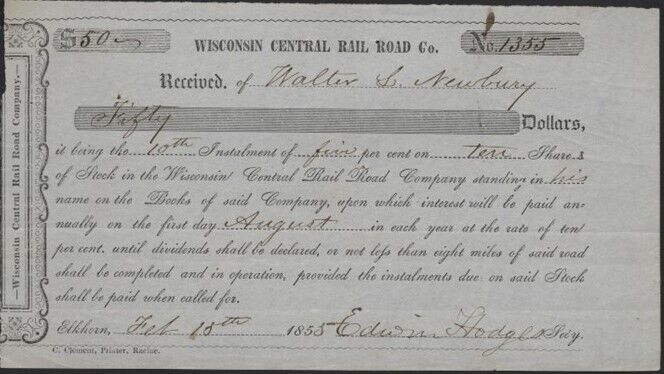 —Wisconsin Central Rail Road Company.—
$ 50 WISCONSIN CENTRAL RAIL ROAD Co. No. 1355
Received, of Walter S. Newbury
Fifty Dollars,
it being the 10th Instalment of five per cent on ten Shares
of Stock in the Wisconsin Central Rail Road Company standing in his
name on the Books of said Company, upon which interest will be paid an-
nually on the first day August in each year at the rate of ten
per cent. until dividends shall be declared, or not less than eight miles of said road
shall be completed and in operation, provided the instalments due on said Stock
shall be paid when called for.
Elkhorn, Feb 15th 1855 Edwin Hodges Sec'y.
C. Clement, Printer, Racine.